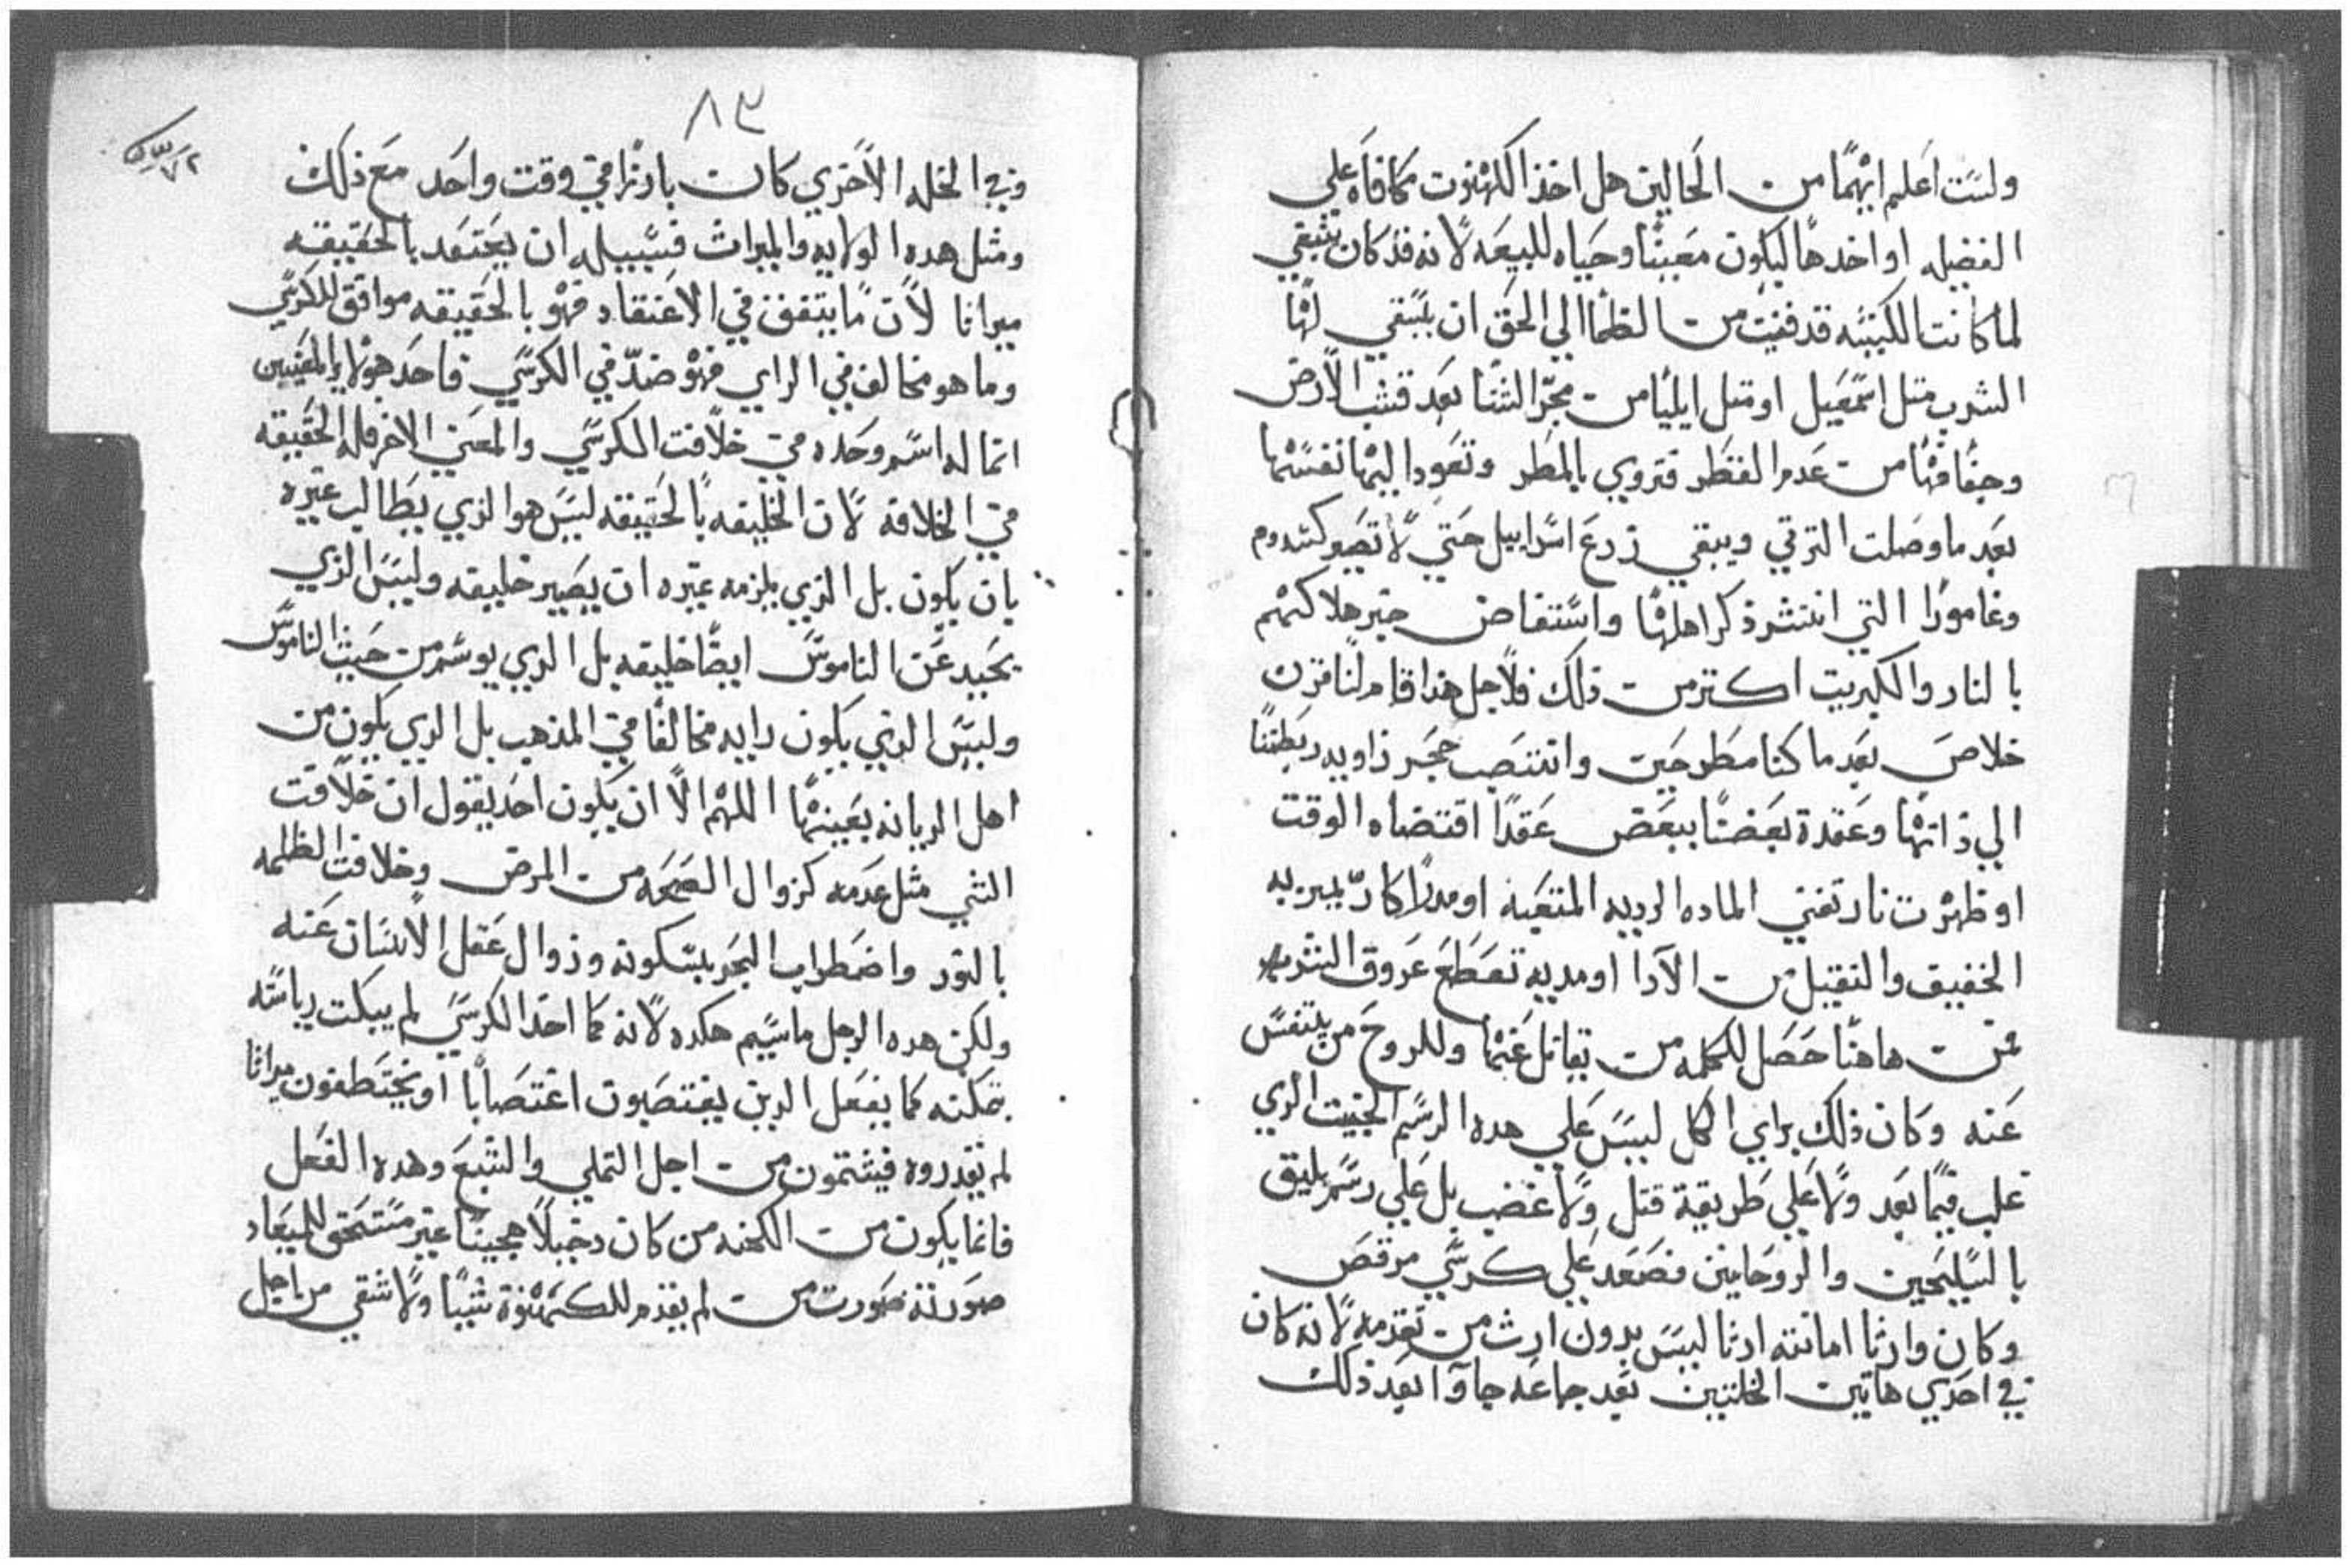 ولست اعلم ايهما من الحالين هل اخذ الكهنوت مكافاه علي
الفضيله او اخدها ليكون معينًا وحياه للبيعه لانه قد كان ينبغي
لما كانت الكنيسه قد فنيت من الظما الي الحق ان تسقي لها
الشرب متل اسمعيل او متل ايليا من مجر الشتا بعد قشب الارض
وجفافها من عدم القطر فتروي بالمطر وتعود اليها نفسها
بعد ما وصلت الترقي ويبقي زرع اسراييل حتي لا تصير كسدوم
وغامورا التي انتشر ذكر اهلها واستفاض خبر هلاكهم
بالنار والكبريت اكتر من ذلك فلاجل هذا قام لنا قرن
خلاص بعد ما كنا مطرحين وانتصب حجر زاويه ربطنا
الي ذاتها وعقدة بعضنا ببعض عقدًا اقتضاه الوقت
او ظهرت نار تفني الماده الرديه المتعبه او مدرًا كادّ يميز به
الخفيف والتقيل من الآرا او مديه تقطع عروق الشر
فمن هاهنا حصل للكلمه من يقاتل عنها وللروح من يتنفس
عنه وكان ذلك براي الكل ليس علي هده الرسم الخبيت الدي
غلب فيما بعد ولا علي طريقة قتل ولا غضب بل علي رسم يليق
بالسليحين والروحانيين فصعد علي كرسي مرقص
وكان وارثا امانته ارثا ليس بدون ارث من تقدمه لانه كان
في احدي هاتين الخلتين بعد جماعه جاوآ بعد ذلك
٨٣
وفي الخله الاخري كان بارزًا في وقت واحد مع ذلك
ومثل هده الولايه والميراث فسبيله ان يعتقد بالحقيقه
ميراثا لان ما يتفق في الاعتقاد فهو بالحقيقه موافق للكرسي
وما هو مخالف في الراي فهو ضدّ في الكرسي فاحد هولاي المعنيين
انما له اسم وحده في خلافت الكرسي والمعني الاخر فله الحقيقه
في الخلافة لان الخليفه بالحقيقه ليس هو الزي يطالب غيره
بان يكون بل الزي يلزمه غيره ان يصير خليفه وليس الزي
يحيد عن الناموس ايضًا خليفه بل الدي يوسم من حيث الناموس
وليس الدي يكون رايه مخالفًا في المذهب بل الدي يكون من
اهل الديانه بعينها اللهم الا ان يكون احد يقول ان خلافت
الشي مثل عدمه كزوال الصحه من المرض وخلافت الظلمه
بالنور واضطراب البحر بسكونه وزوال عقل الانسان عنه
ولكن هده الرجل ماسيم هكده لانه كما اخد الكرسي لم يبكت رياسته
كما يفعل الدين يغتصبون اغتصابًا او يختطفون ميراثا
لم يقدروه فيشتمون من اجل التملي والشبع وهده الفعل
فانما يكون من الكهنه من كان دخيلًا هجينًا غير مستحق للميعاد
صورته صورت من لم يقدم للكهنوة شيًا ولا شقي من اجل